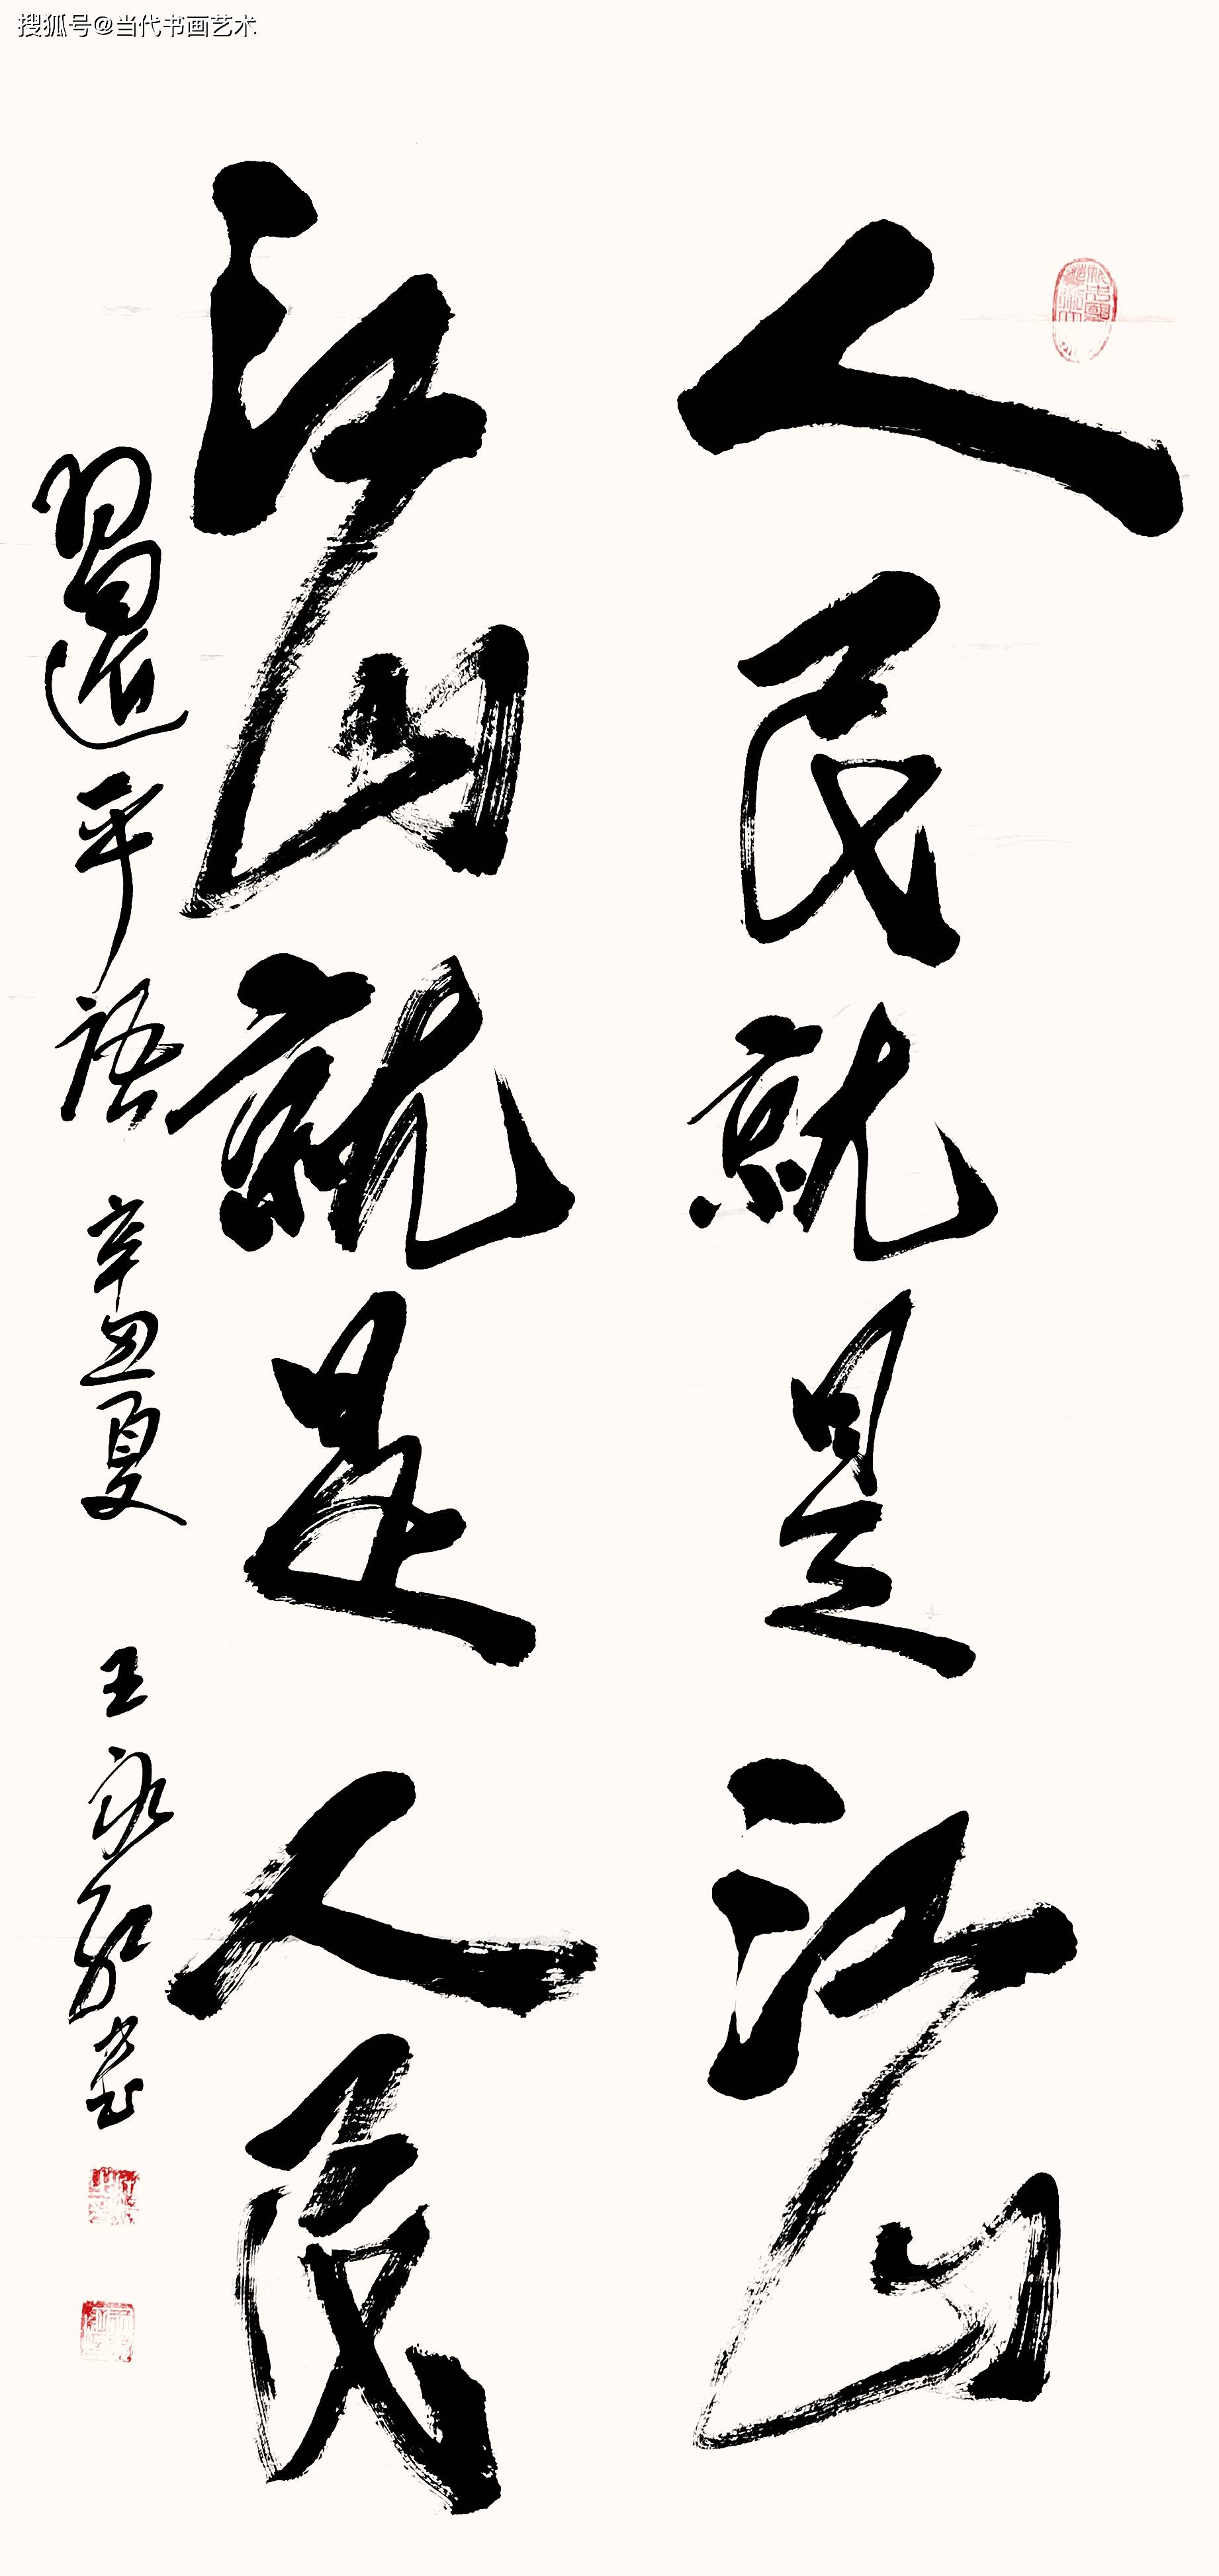 搜狐号@当代书画艺术
人民就是江山
江山就是人民
習近平語 辛丑夏 王永 书